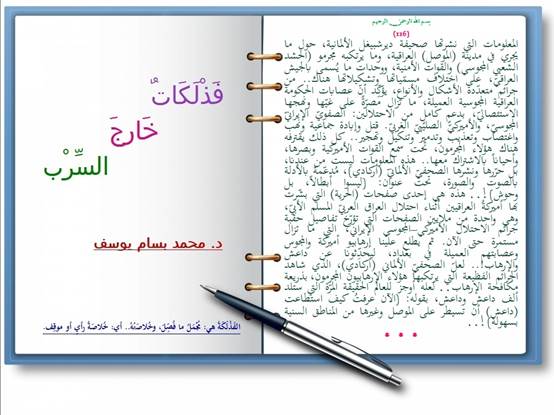 بسم الله الرحمن الرحيم
(116)
المعلومات التي نشرتها صحيفة ديرشبيغل الألمانية، حول ما
يجري في مدينة (الموصل) العراقية، وما يرتكبه مجرمو (الحشد
الشعبي المجوسي) والقوات الأمنية، ووحدات ما يُسمى بالجيش
العراقيّ، على اختلاف مستوياتها وتشكيلاتها هناك.. من
جرائم متعدّدة الأشكال والأنواع، يؤكّد أن عصابات الحكومة
العراقية المجوسية العميلة، ما تزال مصرّة على غيّها ونهجها
الاستئصاليّ، بدعم كامل من الاحتلالين: الصفويّ الإيرانيّ
المجوسيّ، والأميركيّ الصليبيّ الغربيّ. قتل وإبادة جماعية ونهب
واغتصاب وتعذيب وتدمير وتنكيل وتهجير.. كل ذلك يقترفه
هناك هؤلاء المجرمون، تحت سمع القوات الأميركية وبصرها،
وأحياناً بالاشتراك معها.. هذه المعلومات ليست من عندنا،
بل حرّرها ونشرها الصحفيّ الألماني (أركادي)، مدعّمة بالأدلة
بالصوت والصورة، تحت عنوان: (ليسوا أبطالاً، بل
وحوش)!.. هذه هي إحدى صفحات (الحرية) التي بشّرت
بها أميركةُ العراقيين أثناء احتلال العراق العربيّ المسلم الأبيّ،
وهي واحدة من ملايين الصفحات التي تؤرّخ تفاصيل حقبة
جرائم الاحتلال الأميركيّ-المجوسي الإيراني، التي ما تزال
مستمرة حتى الآن. ثم يطلع علينا إرهابيو أميركة والمجوس
وعصابتهم العميلة في بغداد، ليحدّثونا عن داعش
والإرهاب!.. لعلّ الصحفيّ الألماني (أركادي)، الذي شاهد
الجرائم الفظيعة التي يرتكبها هؤلاء الإرهابيون المجرمون، بذريعة
مكافحة الإرهاب... لعله أوجز للعالَم الحقيقة المرّة التي ستلد
ألف داعش وداعش، بقوله: (الآن عرفتُ كيف استطاعت
(داعش) أن تسيطر على الموصل وغيرها من المناطق السنية
بسهولة)!..
* * *
فَذْلَكَاتٌ
خَارِجَ
السِّرْب
د. محمد بسام يوسف
الفَذْلَكَةُ هي: مُجْمَلُ ما فُصِّلَ، وخُلاصَتُهُ.. أي: خُلاصَةُ رأيٍ أو موقِف.